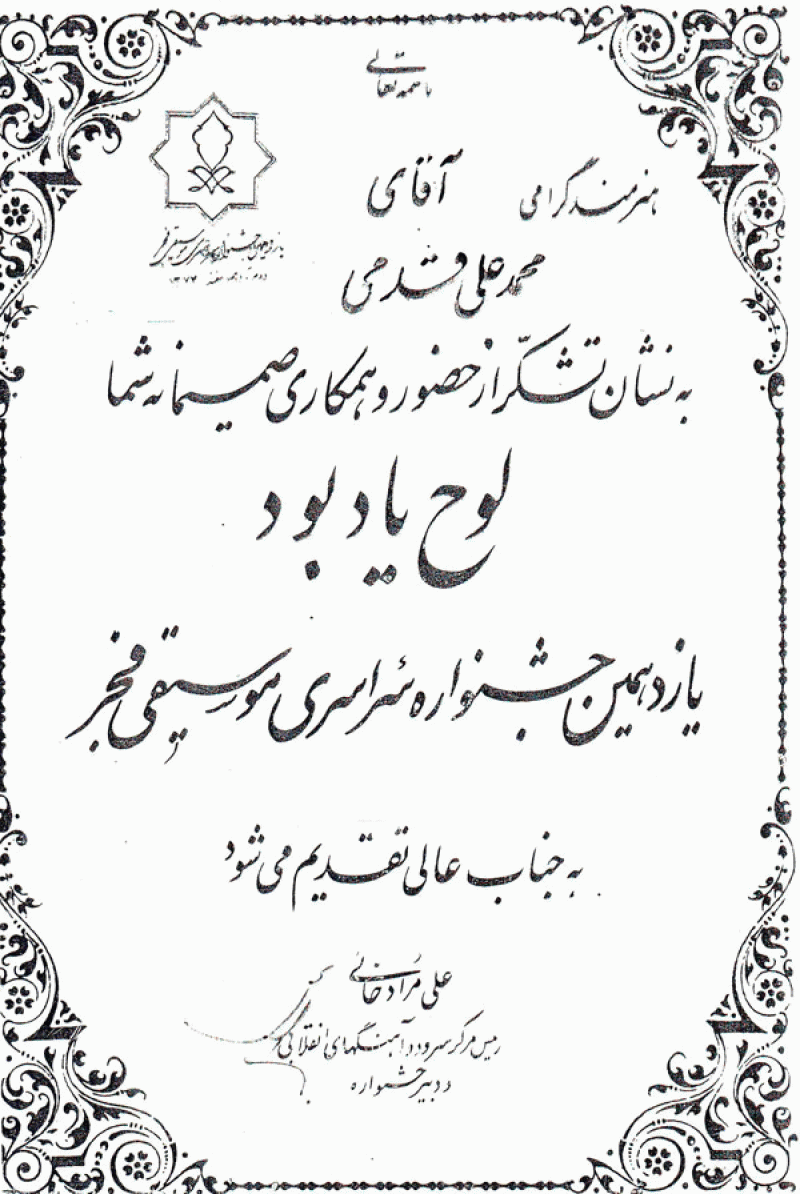 باسمه تعالی
هنرمند گرامی آقای
محمد علی قدمی
به نشان تشکّر از حضور و همکاری صمیمانه شما
لوح یاد بود
یازدهمین جشنواره سراسری موسیقی فجر
به جناب عالی تقدیم می شود
علی مرادخانی
رئیس مرکز سرود و آهنگهای انقلابی
و دبیر جشنواره
یازدهمین جشنواره سراسری موسیقی فجر
۱۳۷۴